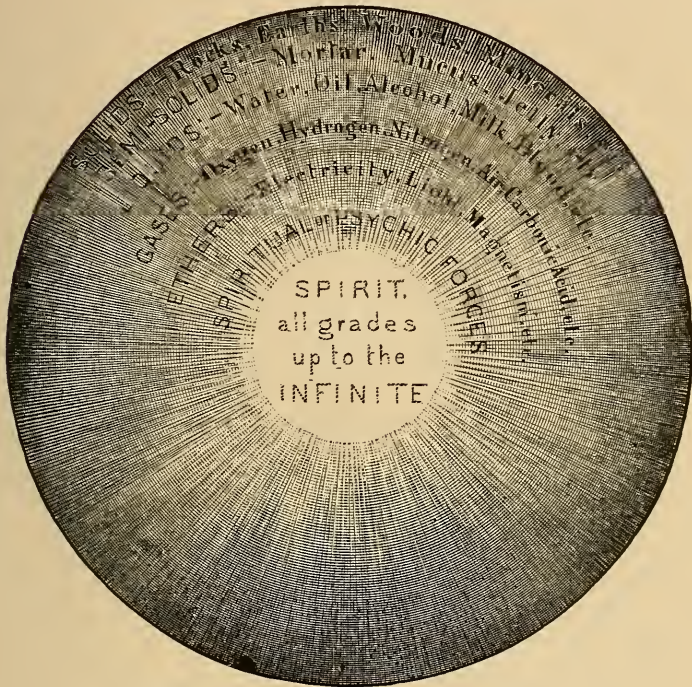 SOLIDS:—Rocks, Earths, Woods,
SEMI-SOLIDS:—Mortar, Mucus, Jelly, etc.
—Water, Oil, Alcohol, Milk, Blood, etc.
GASES:—Oxygen, Hydrogen, Nitrogen, Air, Carbonic Acid, etc.
ETHERS:—Electricity, Light, Magnetism, etc.
SPIRITUAL or PSYCHIC FORCES
SPIRIT,
all grades
up to the
INFINITE